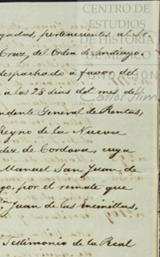 CENTRO DE
ESTUDIOS
HISTORIA
gados, pertenecientes al Sr.
Cruz, del Orden de Santiago,
despachado a favor del
a los 28 dias del mes de
ndente General de Rentas,
Reyno de la Nueva
dez de Cordova, cuya
Manuel San Juan de
go, por el remate que
n Juan de los
Testimonio de la Real